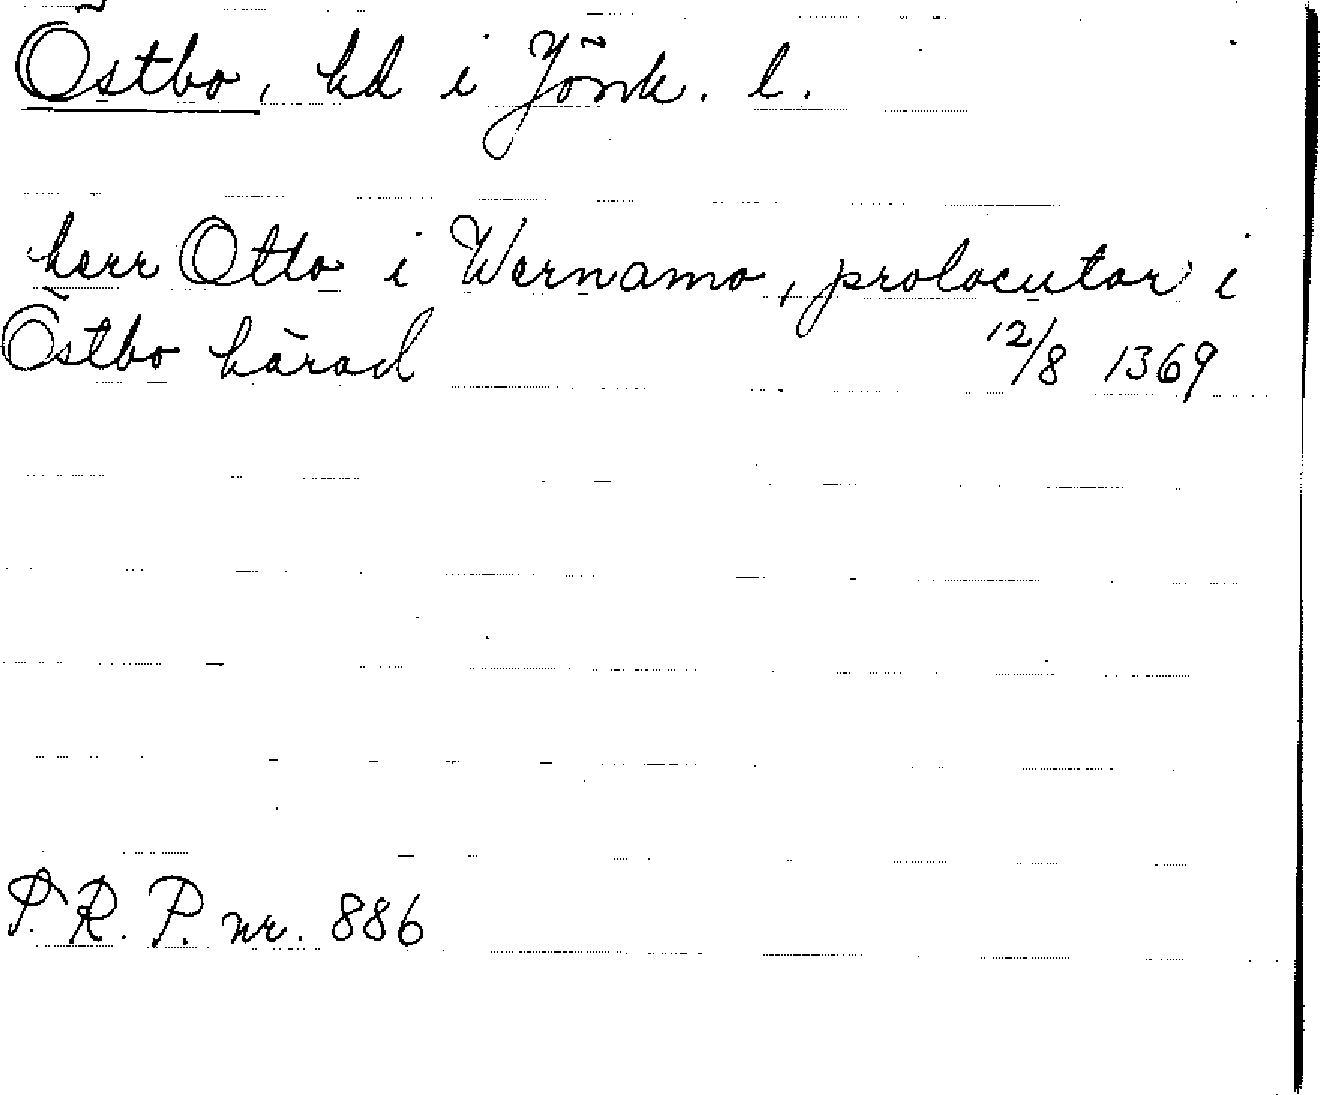 Östbo, hd i Jönk. l.
herr Otto i Wernamo, prolocutor i
Östbo härad 12/8 1369
P. R. P. nr. 886